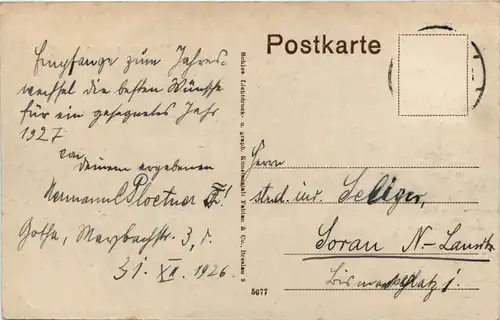 Postkarte
Empfange zum Jahres-
wechsel die besten Wünsche
für ein gesegnetes Jahr
1927
von
Deinem ergebenen
Hermann Ploetner
Gotha, Maybachstr. 3, r.
31. XII. 1926.
Schles. Lichtdruck- u. graph. Kunstanstalt Fabian & Co., Breslau 2
5677
Herrn
stud. iur. Seliger,
Sorau N-Lausitz
Bismarckplatz 1.